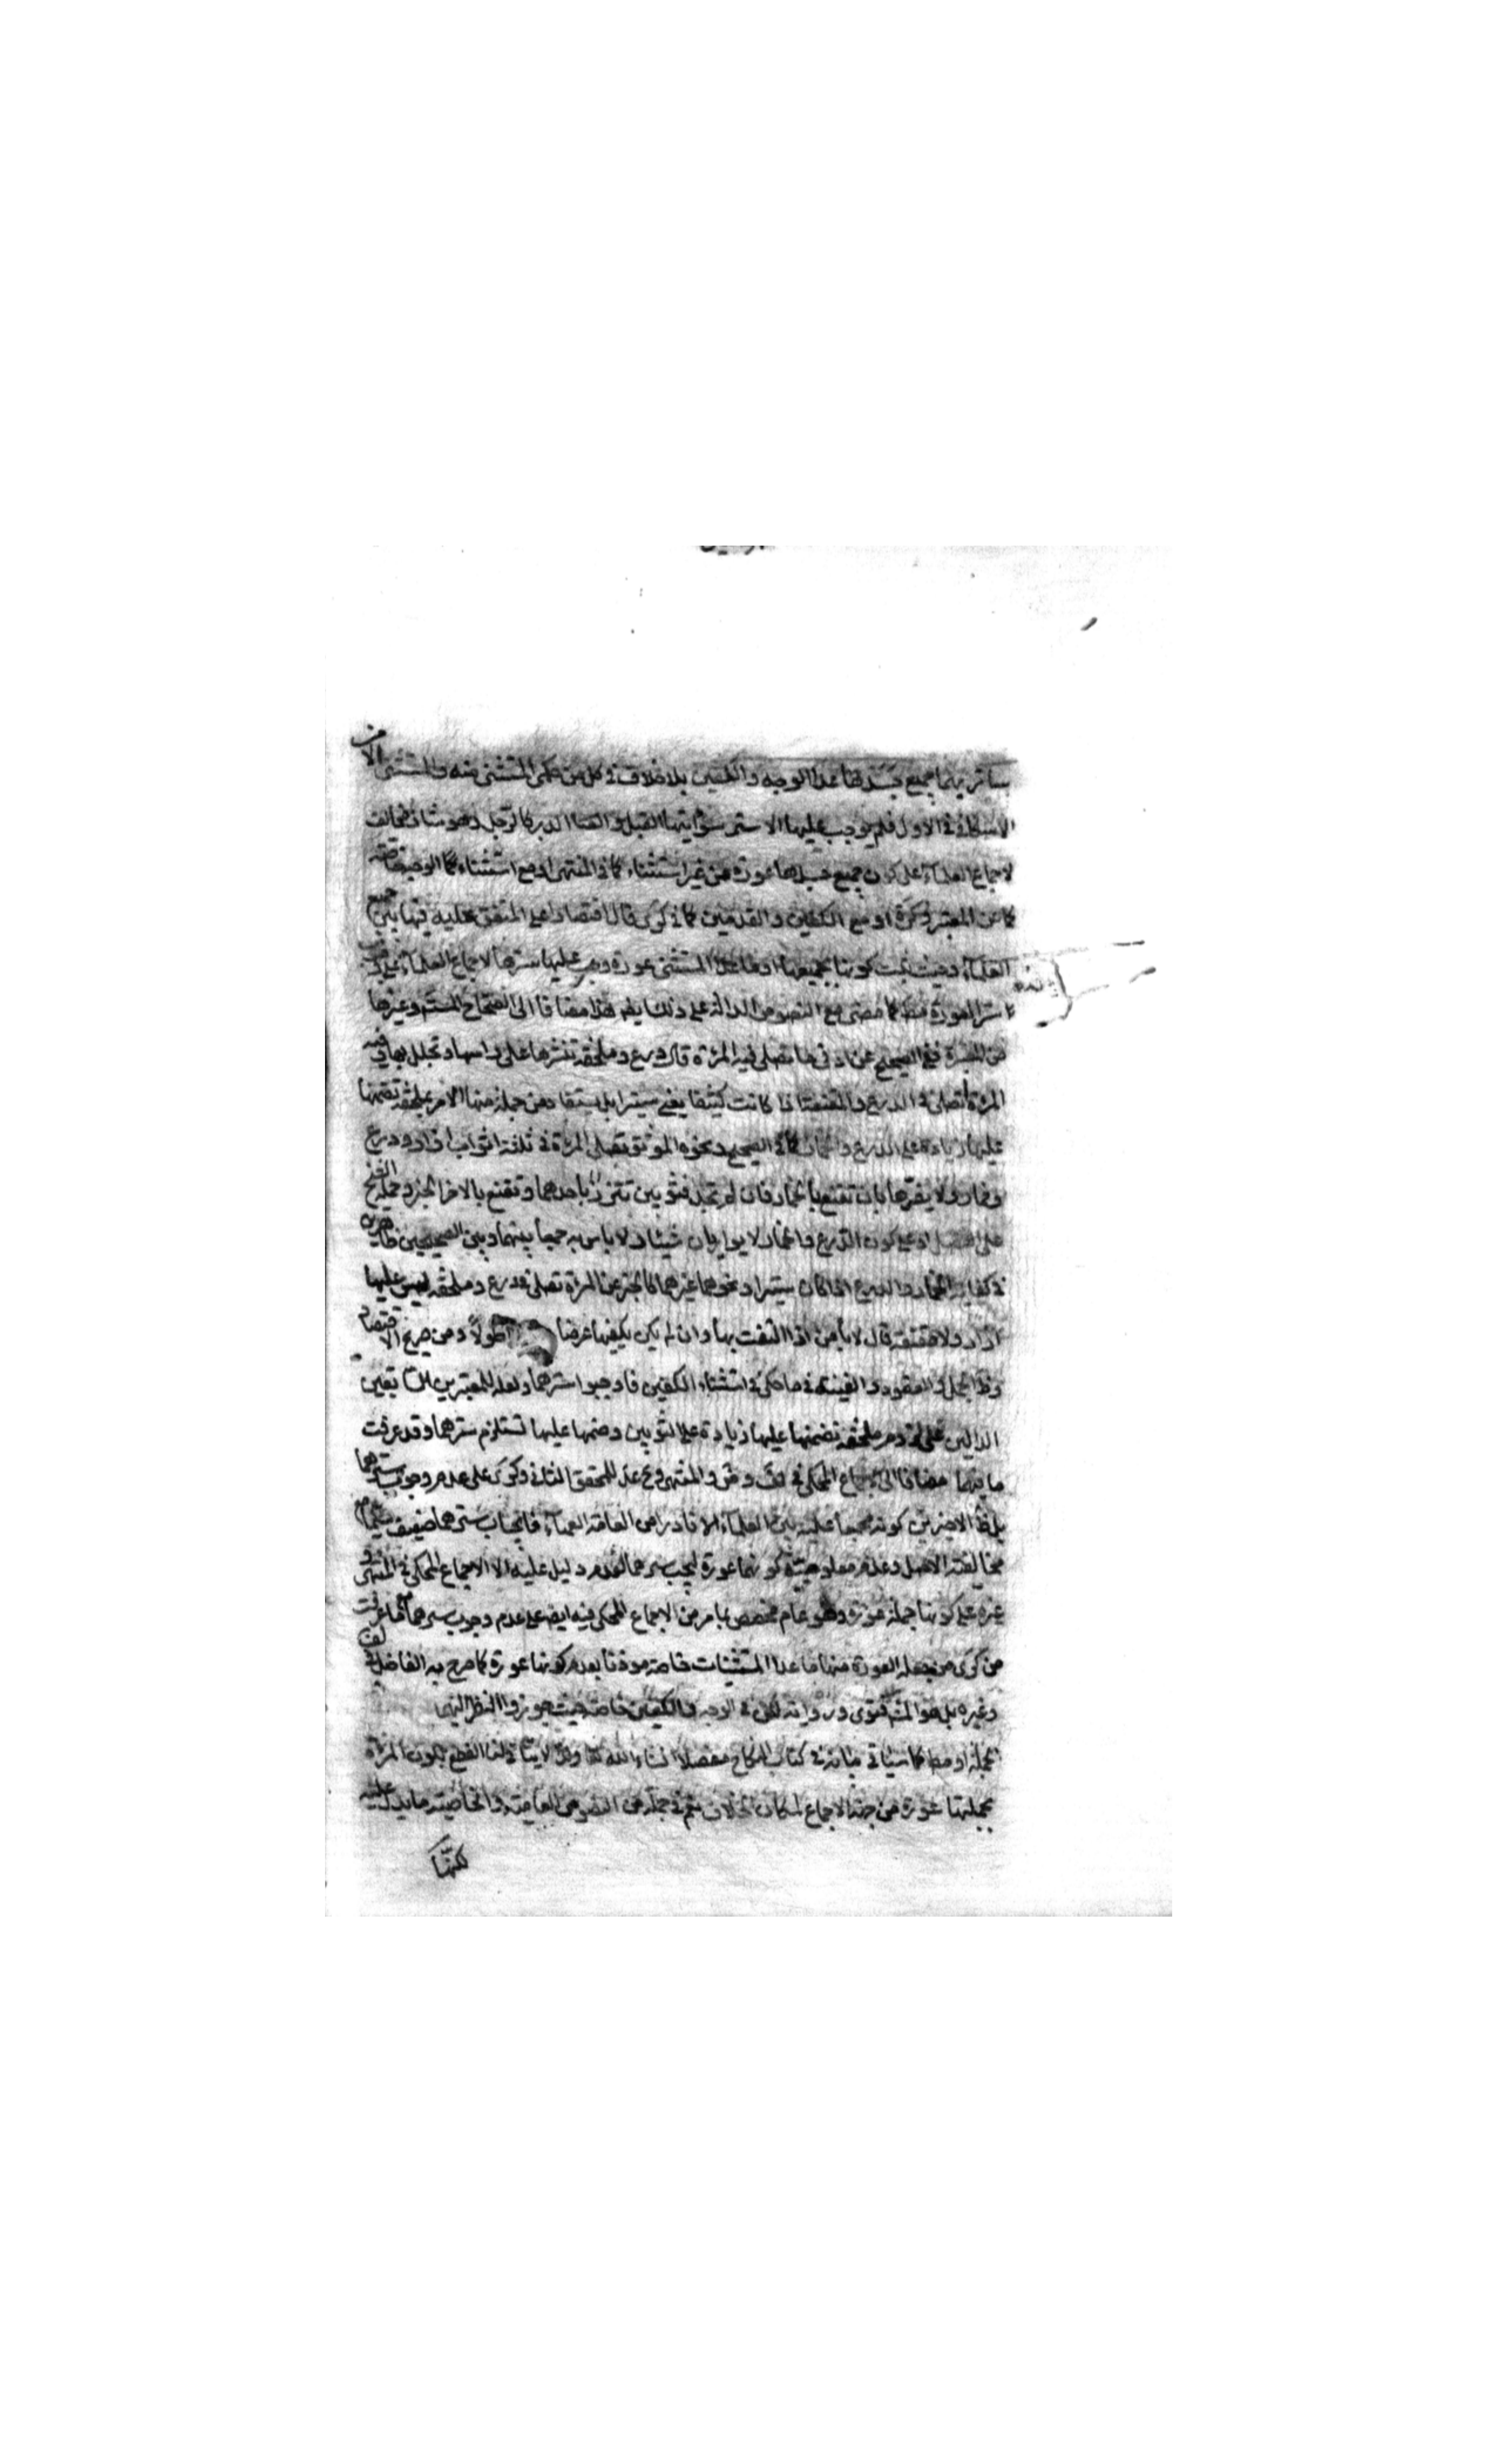 ساتر بهما جميع جسدها عدا الوجه والكفين بلا خلاف في كل من حكمي المستثنى منه والمستثنى الا من
الاسكافي في الاول فلم يوجب عليها الا ستر سوأتيها القبل والدبر كالرجل وهو شاذ مخالف
لاجماع العلماء على كون جميع جسدها عورة من غير استثناء كما في المنتهى او مع استثناء الوجه خاصة
كما عن المعتبر وكرة او مع الكفين والقدمين كما في كرى قال اقتصارا على المتفق عليه فيها بين جميع
العلماء وحيث ثبت كونها بجميعها او ما عدا المستثنى عورة وجب عليها سترها لاجماع العلماء على
ستر العورة كما مضى مع النصوص الدالة على ذلك هذا مضافا الى الصحاح المستفيضة وغيرها
من المعتبرة ففي الصحيح عن ادنى ما تصلي فيه المرأة قال درع وملحفة تنشرها على راسها وتجلل بها وفيه
المرأة تصلي في الدرع والمقنعة اذا كانت كثيفا يعني ستيرا بل يستفاد من جملة منها الامر بملحفة تضمها
عليها زيادة على الدرع والخمار كما في الصحيح ونحوه الموثق تصلي المرأة في ثلثة اثواب ازار ودرع
وخمار ولا يضرها بان تقنع بالخمار فان لم تجد فثوبين تتزر باحدهما وتقنع بالاخر الخبر وحمله الشيخ
على الفضل او على كون الدرع والخمار لا يواريان شيئا ولا باس به جمعا بينهما وبين الصحيحين
في كفاية الخمار والدرع اذا كان ستيرا ونحوهما غيرهما كالخبر عن المرأة تصلي في درع وملحفة ليس عليها
ازار ولا مقنعة قال لا باس اذا التفت بها وان لم يكن يكفيها عرضا طولا ومن صريح الاقتصاد
وظ الجمل والعقود والغنية في ما حكى في استثناء الكفين فاوجبوا سترهما ولعله للمعتبرين السابقين
الدالين على لزوم ملحفة تضمها عليها زيادة على الثوبين وضمها عليها تستلزم سترهما وقد عرفت
ما فيهما مضافا الى الاجماع المحكي في لف وض والمنتهى وعن المحقق الثاني وكرى على عدم وجوب سترهما
بل ظ الاخيرين كونه مجمعا عليه بين العلماء الا نادرا من العامة العمياء فايجاب سترهما ضعيف
مخالفته الاصل وعدم معلومية كونهما عورة ليجب سترهما لعدم دليل عليه الا الاجماع المحكي في المنتهى و
غيره على كونها جملة عورة وهو عام مخصص بما مر من الاجماع المحكي فيه ايضا على عدم وجوب سترهما مع ما عرفت
من كرى من جعله العورة منها ما عدا المستثنيات خاصة موذنا بعدم كونها عورة كما صرح به الفاضل في لف
وغيره بل هو المشهور فتوى ورواية لكن في الوجه والكفين خاصة حيث جوزوا النظر اليهما
في الجملة او مطلقا كما سياتي بيانه في كتاب النكاح مفصلا انشاء الله تعالى القطع بكون المرأة
بجملتها عورة من جهة الاجماع لمكان الخلاف نعم في جملة من النصوص العامية والخاصية ما يدل عليه
لكنها